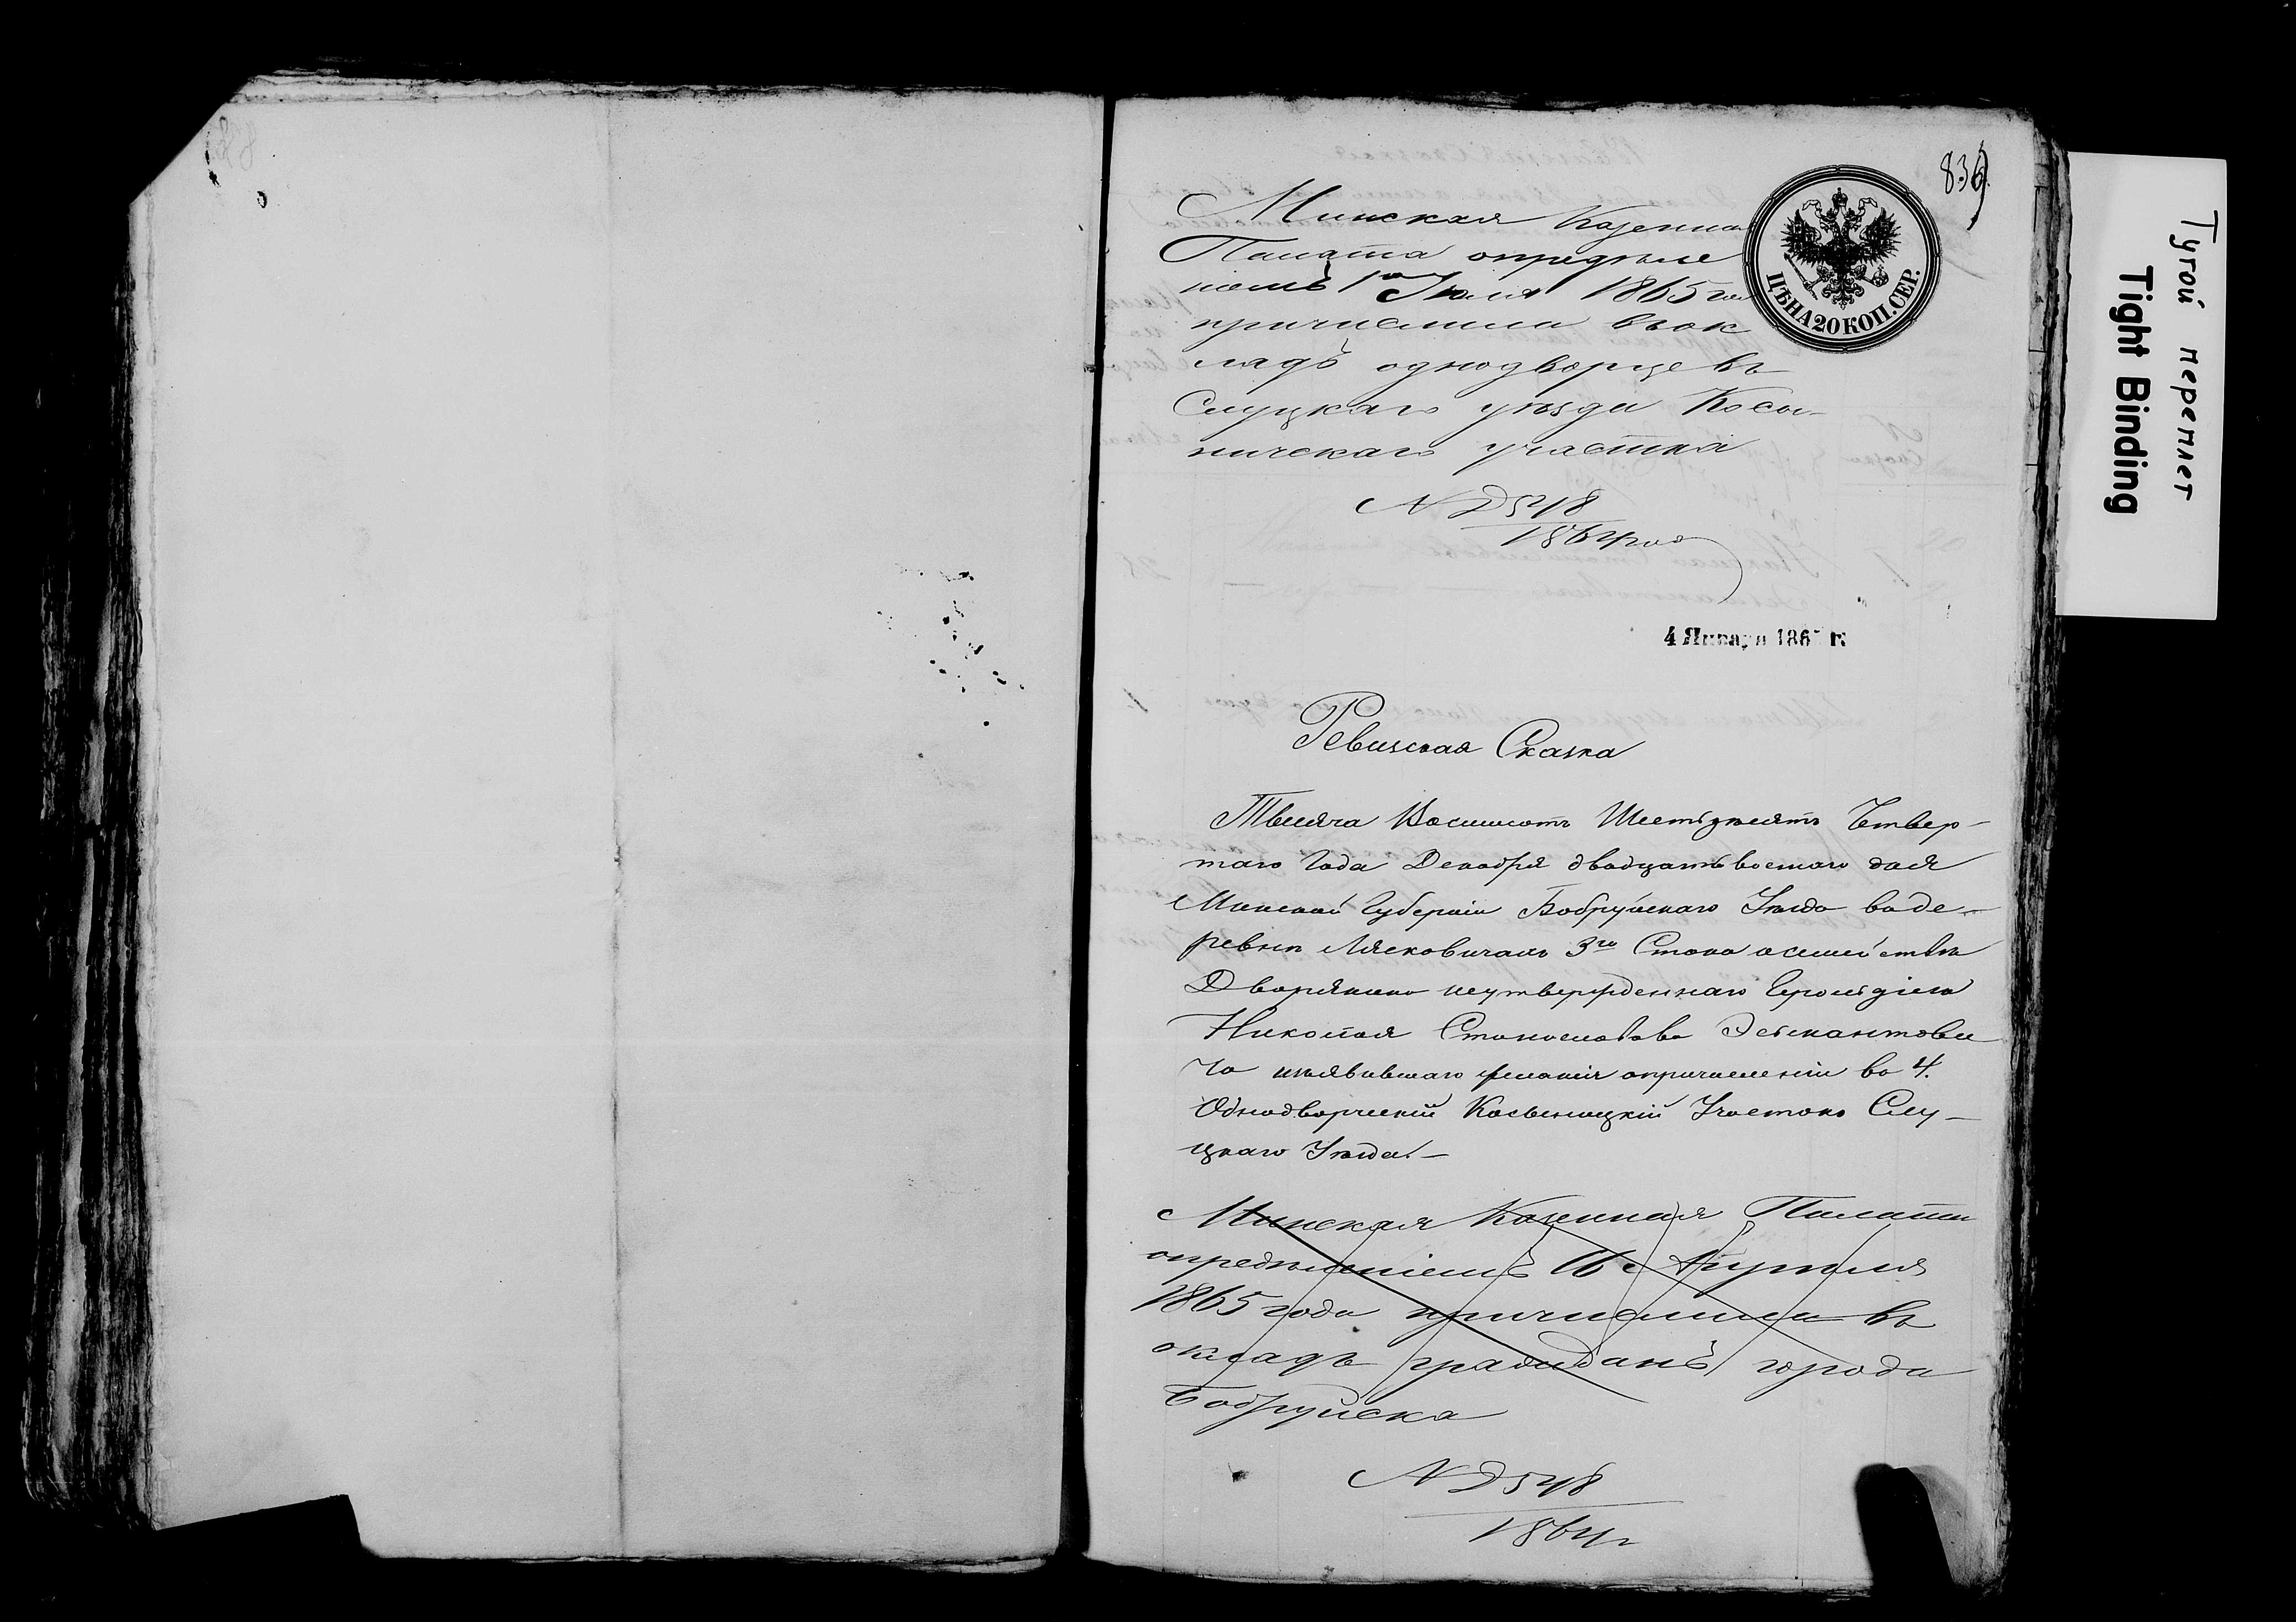 839
Минская Казенна
Палата определе
ніемъ 1го Іюля 1865 го
причислила въ ок
ладъ однодворцевъ
Слуцкаго уѣзда Косы-
ничскаго участка
N Д548
1864 год
ЦѢНА 20 КОП. СЕР.
4 Января 186 г.
Ревизская Сказка
Тысяча Восимсотъ Шестьдесятъ Четвер-
таго Года Декабря двадцать восмаго дня
Минской Губерніи Бобруйскаго Уѣзда въ де-
ревнѣ Лясковичахъ 3го Стана о семействѣ
Дворянина неутвержденнаго Герольдіею
Николая Станиславова Эйсмантови
ча изъявившаго желаніе о причисленіи въ 4.
Однодворческій Косыницкій Участокъ Слу-
цкаго Уѣзда.—
Минская Казенная Палата
опредѣленіемъ 16 Апрѣля
1865 года причислила въ
окладъ гражданъ города
Бобруйска
N Д548
1864 г
Тугой переплет
Tight Binding